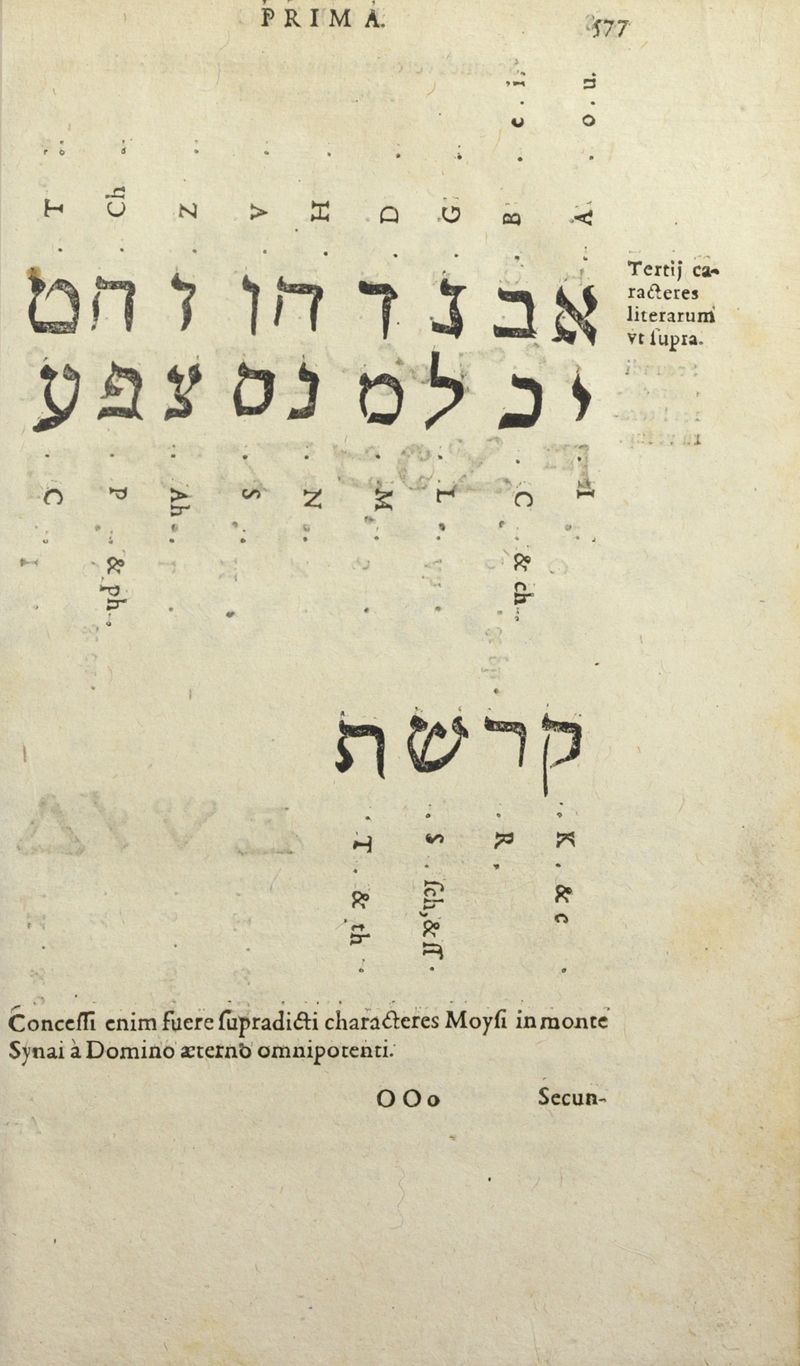 PRIMA. 577
A . o . u.
B . e . i.
G
D
H
V
Z
Ch
T
א ב ג ד ה ו ז ח ט
Tertij ca-
racteres
literarum
vt ſupra.
י כ ל מ נ ס צ פ ע
I
C . & ch.
L
M
N
S
Ah
P . & ph.
C
ק ר ש ת
K . & c
R
S . ſch, & ſſ.
T . & th
Conceſſi enim fuere ſupradicti characteres Moyſi in monte
Synai à Domino æterno omnipotenti.
OOo Secun-